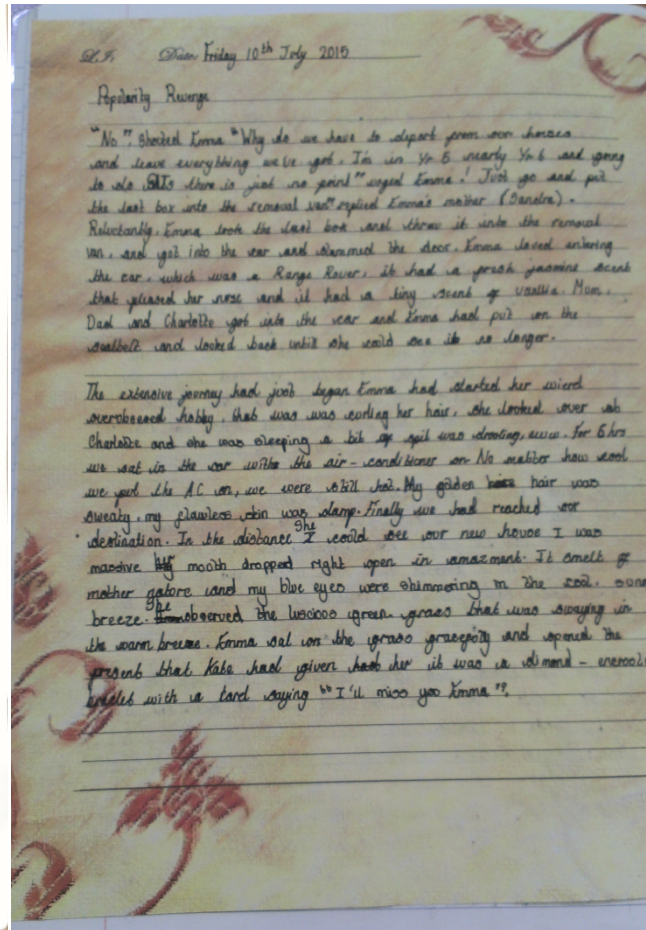 L.I: Date: Friday 10th July 2015
Popularity Revenge
"No", shouted Emma "Why do we have to depart from our houses
and leave everything we've got. I'm in Yr 5 nearly Yr 6 and going
to do SATs there is just no point" urged Emma! Just go and put
the last box into the removal van" replied Emma's mother (Sandra).
Reluctantly, Emma took the last box and threw it into the removal
van, and got into the car and slammed the door. Emma loved entering
the car, which was a Range Rover, it had a fresh jasmine scent
that pleased her nose and it had a tiny scent of vanilla. Mom,
Dad and Charlotte got into the car and Emma had put on the
seatbelt and looked back until she could see it no longer.
The extensive journey had just began Emma had started her wierd
overobsessed hobby, that was was curling her hair, she looked over at
Charlotte and she was sleeping a bit of spit was drooling, eww. For 6 hrs
we sat in the car with the air-conditioner on No matter how cool
we put the AC on, we were still hot. My golden hair was
sweaty, my flawless skin was damp. Finally we had reached our
destination. In the distance She could see our new house I was
massive my mouth dropped right open in amazment. It smelt of
mother and my blue eyes were shimmering in the cool,
breeze. She observed the luscious green grass that was swaying in
the warm breeze. Emma sat on the grass and opened the
present that Kate had given her it was a dimond -
with a card saying "I'll miss you Emma"?